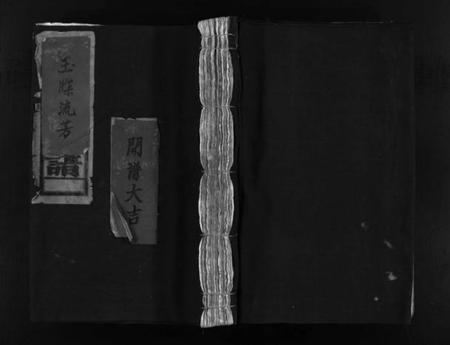 開譜大吉
玉牒流芳
譜